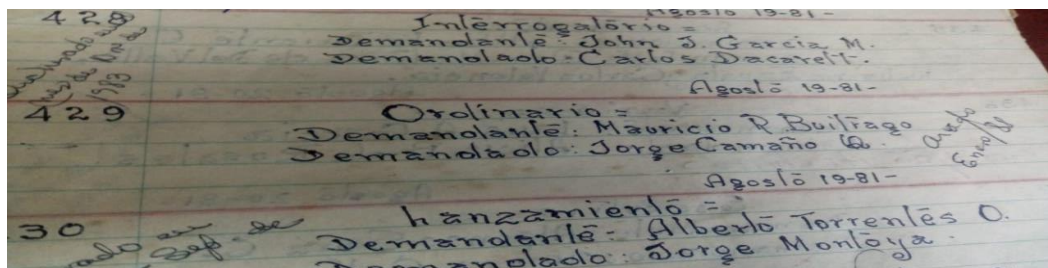 428 Agosto 19-81-
Interrogatorio=
Demandante: John J. Garcia M.
Demandado: Carlos Dacarett.
Agosto 19-81-
429 Ordinario=
Demandante: Mauricio R. Buitrago
Demandado: Jorge Camaño Q.
Enero/81
1983
Agosto 19-81-
30 Lanzamiento=
Demandante- Alberto Torrentes O.
Demandado: Jorge Montoya.